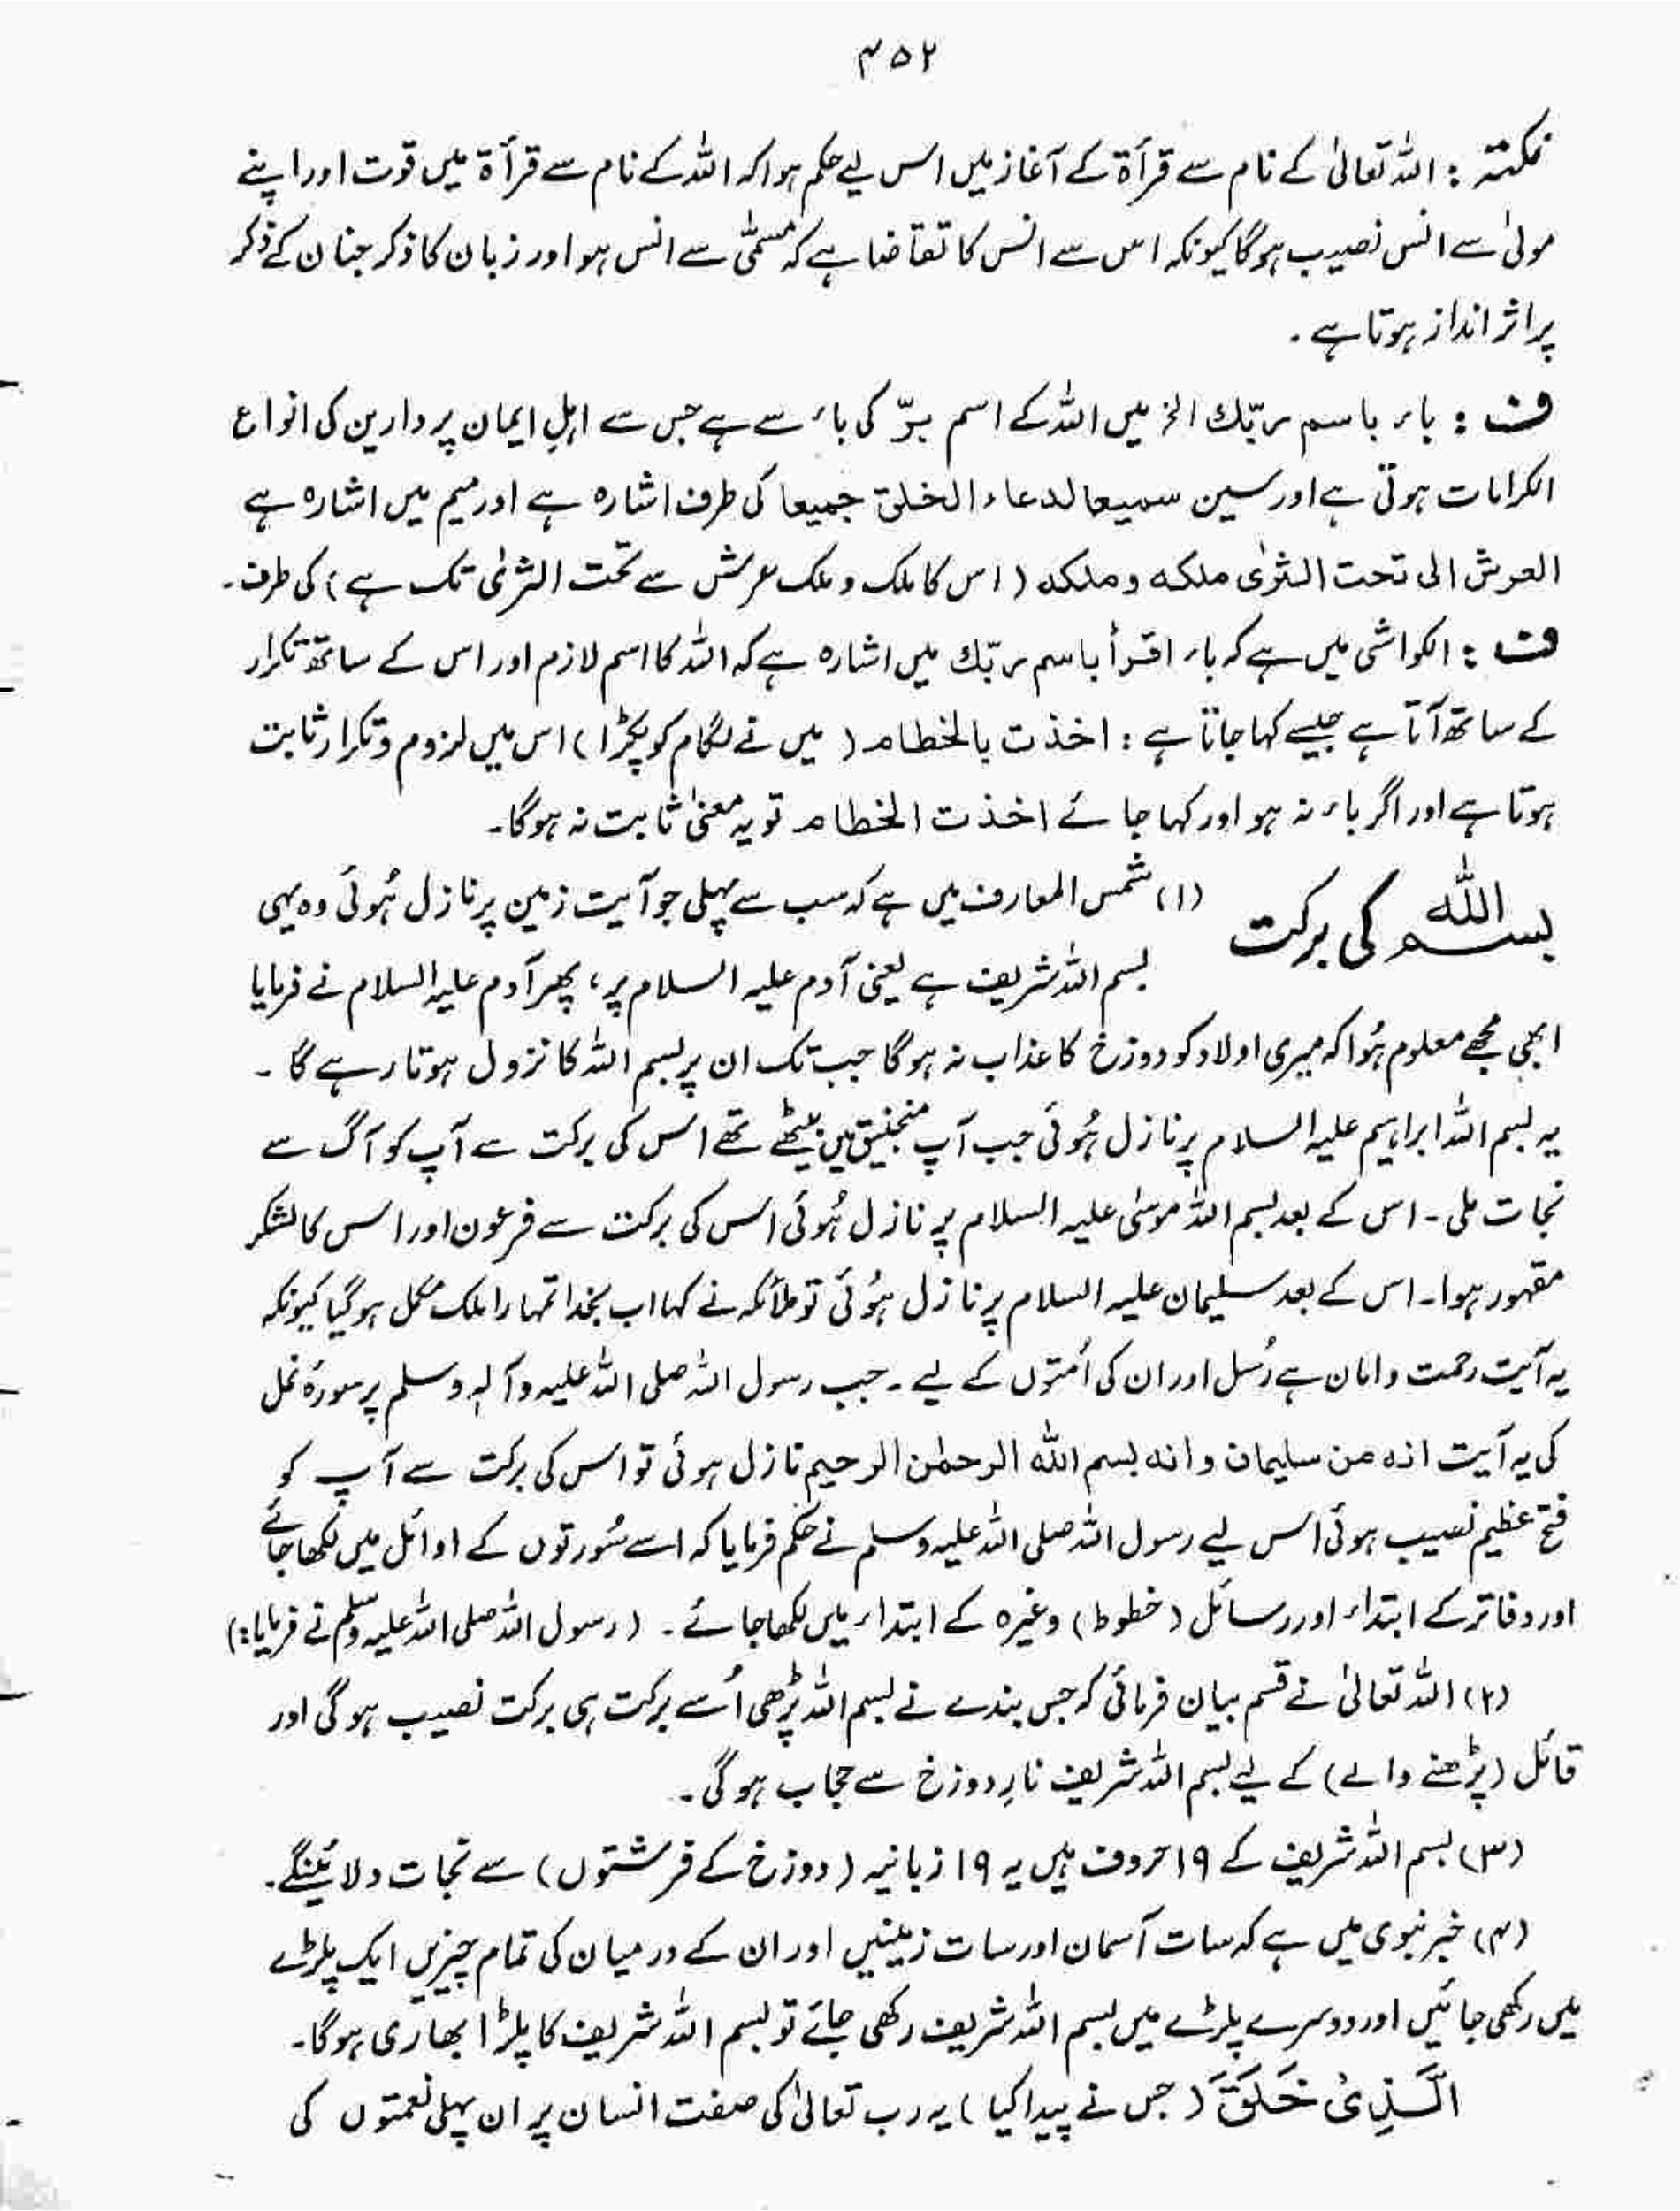 ۴۵۲
نکتہ : اللہ تعالیٰ کے نام سے قرأۃ کے آغاز میں اس لیے حکم ہوا کہ اللہ کے نام سے قرأۃ میں قوت اور اپنے
مولیٰ سے انس نصیب ہوگا کیونکہ اس سے انس کا تقاضا ہے کہ مسمّٰی سے انس ہو اور زبان کا ذکر جنان کے ذکر
پر اثر انداز ہوتا ہے .
ف : باء باسم ربّك الخ میں اللہ کے اسم برّ کی باء سے ہے جس سے اہلِ ایمان پر دارین کی انواع
الکرامات ہوتی ہے اور سین سمیعا لدعاء الخلق جمیعا کی طرف اشارہ ہے اور میم میں اشارہ ہے
العرش الی تحت الثرٰی ملکہ و ملکہ ( اس کا ملک و ملک عرش سے تحت الثرٰی تک ہے ) کی طرف ۔
ف : الکواشی میں ہے کہ باء اقرأ باسم ربّك میں اشارہ ہے کہ اللہ کا اسم لازم اور اس کے ساتھ تکرار
کے ساتھ آتا ہے جیسے کہا جاتا ہے : اخذت بالخطام ( میں نے لگام کو پکڑا ) اس میں لزوم و تکرار ثابت
ہوتا ہے اور اگر باء نہ ہو اور کہا جائے اخذت الخطام تو یہ معنیٰ ثابت نہ ہوگا ۔
بسم اللہ کی برکت (۱) شمس المعارف میں ہے کہ سب سے پہلی جو آیت زمین پر نازل ہُوئی وہ یہی
بسم اللہ شریف ہے یعنی آدم علیہ السلام پر ، پھر آدم علیہ السلام نے فرمایا
ابھی مجھے معلوم ہُوا کہ میری اولاد کو دوزخ کا عذاب نہ ہوگا جب تک ان پر بسم اللہ کا نزول ہوتا رہے گا ۔
یہ بسم اللہ ابراہیم علیہ السلام پر نازل ہُوئی جب آپ منجنیق میں بیٹھے تھے اس کی برکت سے آپ کو آگ سے
نجات ملی ۔ اس کے بعد بسم اللہ موسٰی علیہ السلام پر نازل ہُوئی اس کی برکت سے فرعون اور اس کا لشکر
مقہور ہوا ۔ اس کے بعد سلیمان علیہ السلام پر نازل ہُوئی تو ملائکہ نے کہا اب بخدا تمہارا ملک مکمل ہو گیا کیونکہ
یہ آیت رحمت و امان ہے رُسل اور ان کی اُمتوں کے لیے ۔ جب رسول اللہ صلی اللہ علیہ وآلہٖ وسلم پر سورۂ نمل
کی یہ آیت انہ من سلیمان و انہ بسم اللہ الرحمٰن الرحیم نازل ہوئی تو اس کی برکت سے آپ کو
فتح عظیم نصیب ہوئی اس لیے رسول اللہ صلی اللہ علیہ وسلم نے حکم فرمایا کہ اسے سُورتوں کے اوائل میں لکھا جائے
اور دفاتر کے ابتداء اور رسائل ( خطوط ) وغیرہ کے ابتداء میں لکھا جائے ۔ ( رسول اللہ صلی اللہ علیہ وسلم نے فرمایا : )
(۲) اللہ تعالیٰ نے قسم بیان فرمائی کہ جس بندے نے بسم اللہ پڑھی اُسے برکت ہی برکت نصیب ہوگی اور
قائل ( پڑھنے والے ) کے لیے بسم اللہ شریف نارِ دوزخ سے حجاب ہوگی ۔
(۳) بسم اللہ شریف کے ۱۹ حروف ہیں یہ ۱۹ زبانیہ ( دوزخ کے فرشتوں ) سے نجات دلائینگے ۔
(۴) خبر نبوی میں ہے کہ سات آسمان اور سات زمینیں اور ان کے درمیان کی تمام چیزیں ایک پلڑے
میں رکھی جائیں اور دوسرے پلڑے میں بسم اللہ شریف رکھی جائے تو بسم اللہ شریف کا پلڑا بھاری ہوگا ۔
الَّذِیْ خَلَقَ ( جس نے پیدا کیا ) یہ رب تعالیٰ کی صفت انسان پر ان پہلی نعمتوں کی